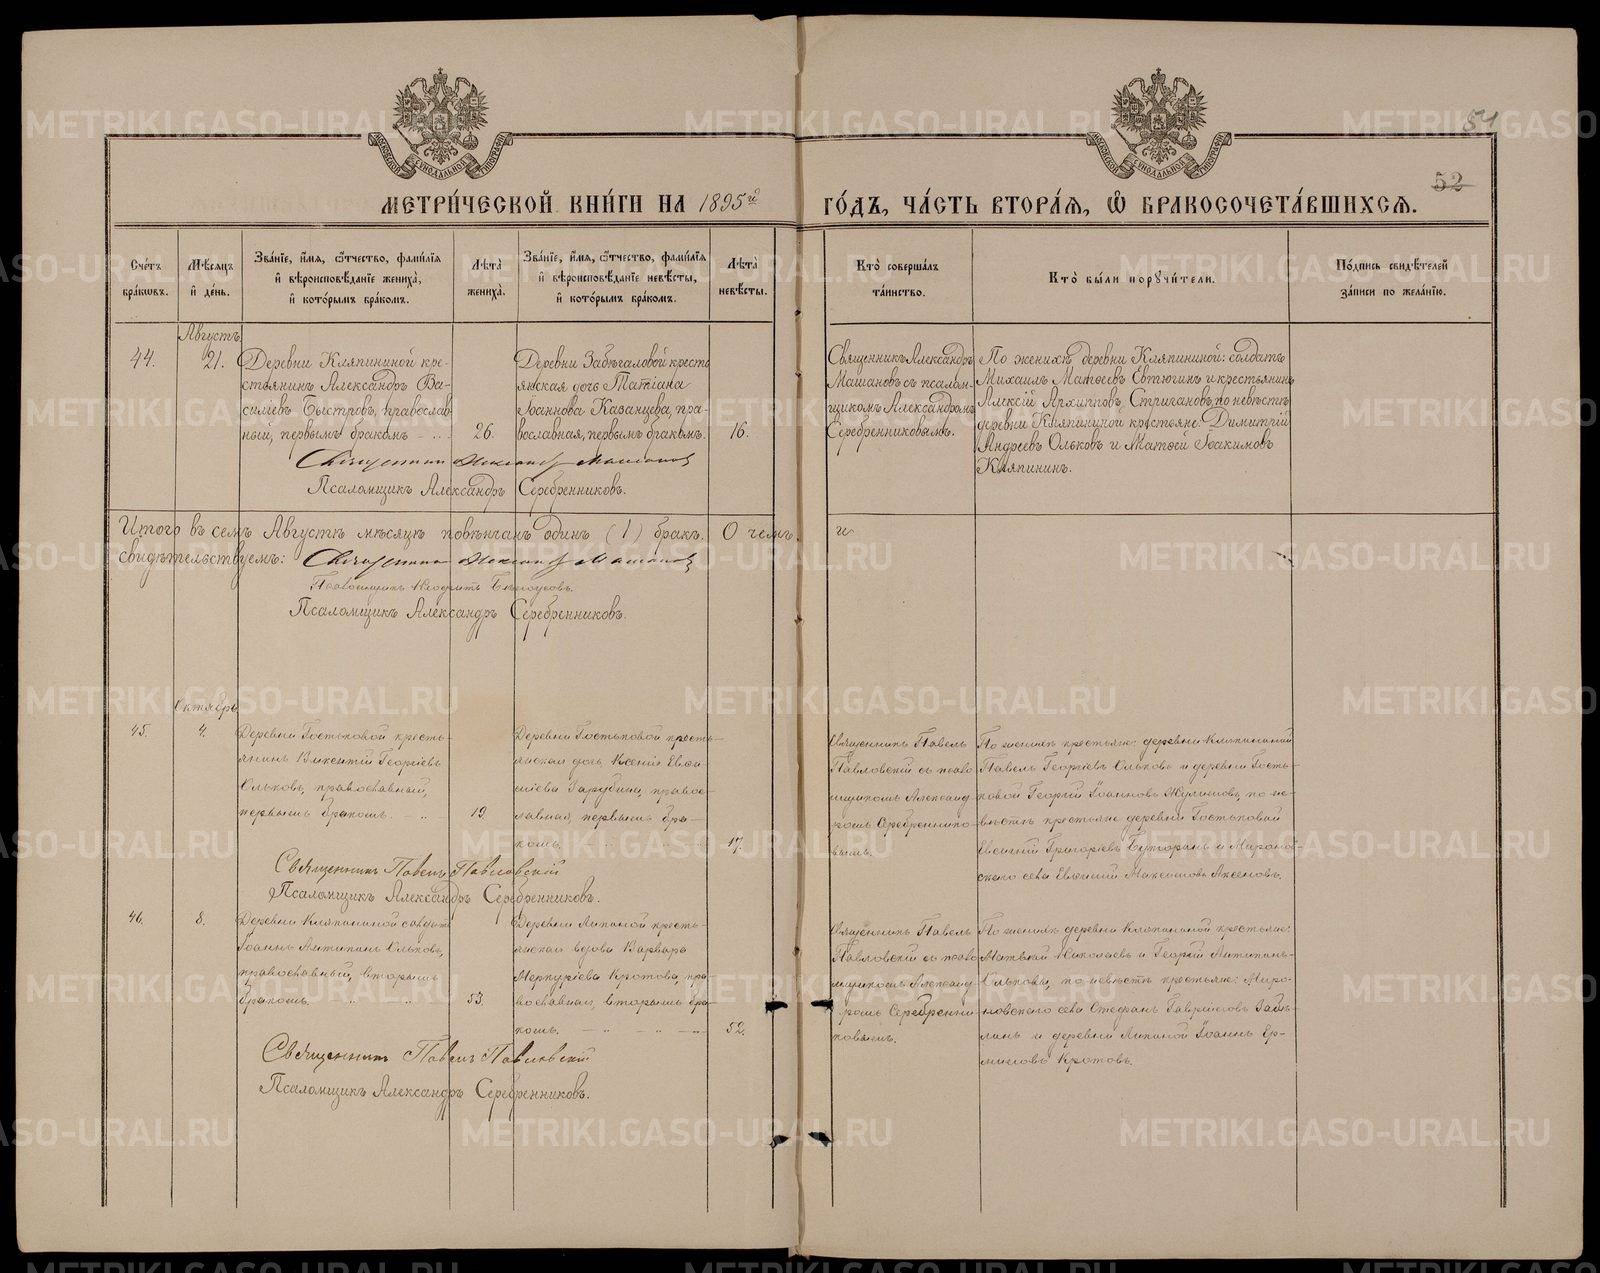 54
52
МОСКОВСКОЙ СѴНОДАЛЬНОЙ ТИПОГРАФІИ
МОСКОВСКОЙ СѴНОДАЛЬНОЙ ТИПОГРАФІИ
МЕТРИ́ЧЕСКОЙ КНИ́ГИ НА 1895й
ГО́ДЪ, ЧА́СТЬ ВТОРА́Я, Ѡ БРАКОСОЧЕТА́ВШИХСЯ.
Сче́тъ бра́кѡвъ.
Мѣ́сяцъ и҆ де́нь.
Зва́нїе, и҆́мя, ѻ҆́тчество, фами́лїя
и҆ вѣроисповѣ́данїе жениха̀,
и҆ кото́рымъ бра́комъ.
Лѣ́та жениха̀.
Зва́нїе, и҆́мя, ѻ҆́тчество, фами́лїя
и҆ вѣроисповѣ́данїе невѣ́сты,
и҆ кото́рымъ бра́комъ.
Лѣ́та невѣ́сты.
Кто̀ соверша́лъ
та́инство.
Кто̀ бы́ли порꙋчи́тели.
По́дпись свидѣ́телей
за́писи по жела́нїю.
Августъ
44.
21.
Деревни Кляпининой кре-
стьянинъ Александръ Ва-
силіевъ Быстровъ, православ
ный, первымъ бракомъ
26.
Деревни Забѣгаловой кресть
янская дочь Татіана
Іоаннова Казанцева, пра-
вославная, первымъ бракомъ.
16.
Священникъ Александръ
Машановъ съ псалом-
щикомъ Александромъ
Серебренниковымъ.
По женихѣ деревни Кляпининой: солдатъ
Михаилъ Матѳеевъ Евтюгинъ и крестьянинъ
Алексій Архипповъ Стригановъ, по невѣстѣ
деревни Кляпининой крестьяне: Димитрій
Андреевъ Ольковъ и Матѳей Іоакимовъ
Кляпининъ.
Священникъ Александръ Машановъ
Псаломщикъ Александръ Серебренниковъ.
Итого въ семъ Августѣ мѣсяцѣ повѣнчанъ одинъ (1) бракъ. О чемъ и
свидѣтельствуемъ: Священникъ Александръ Машановъ
Псаломщикъ Александръ Серебренниковъ.
Октябрь
45.
4.
Деревни Гостьковой кресть-
янинъ Викентій Георгіевъ
Ольковъ, православный,
первымъ бракомъ.
19.
Деревни Гостьковой кресть-
янская дочь Ксенія Евси-
гніева Зарубина, правос-
лавная, первымъ бра-
комъ.
17.
Священникъ Павелъ
Павловскій съ псало-
мщикомъ Александ
ромъ Серебреннико-
вымъ.
По женихѣ крестьяне: деревни Кляпининой
Павелъ Георгіевъ Ольковъ и деревни Гость-
ковой Георгій Іоанновъ Жулимовъ, по не-
вѣстѣ крестьяне деревни Гостьковой
Евсигній Григоріевъ и Миронов-
скаго села Евгеній Максимовъ Аксеновъ.
Священникъ Павелъ Павловскій
Псаломщикъ Александръ Серебренниковъ.
46.
8.
Деревни Кляпининой солдатъ
Іоаннъ Антипинъ Ольковъ,
православный, вторымъ
бракомъ.
53.
Деревни Липиной кресть-
янская вдова Варвара
Меркуріева Кротова, пра
вославная, вторымъ бра-
комъ.
52.
Священникъ Павелъ
Павловскій съ псало
мщикомъ Александ
ромъ Серебренни-
ковымъ.
По женихѣ деревни Кляпининой крестьяне:
Матѳей Николаевъ и Георгій Антипинъ
Ольковы, по невѣстѣ крестьяне: Миро-
новскаго села Стефанъ Гавриловъ
и деревни Липиной Іоаннъ Ер-
миловъ Кротовъ.
Священникъ Павелъ Павловскій
Псаломщикъ Александръ Серебренниковъ.
METRIKI.GASO-URAL.RU